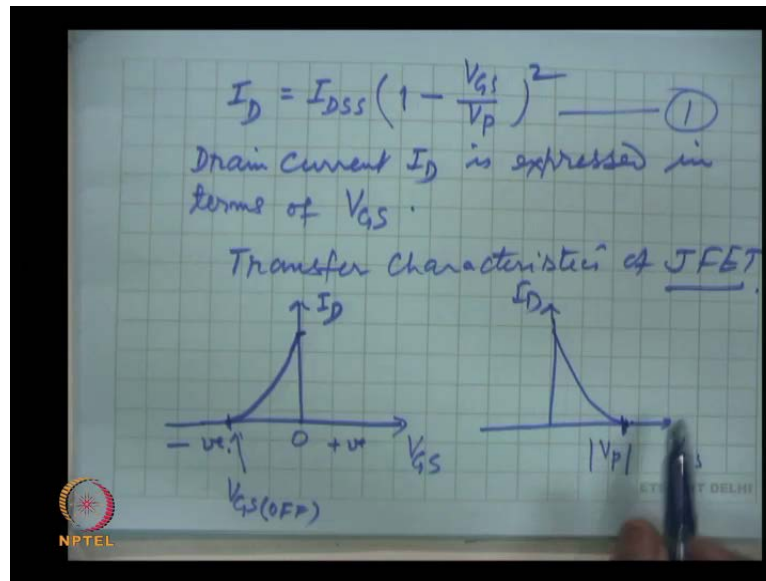 I_D = I_DSS (1 - V_GS/V_P)^2 —— ①
Drain current I_D is expressed in
terms of V_GS.
Transfer characteristics of JFET.
I_D
I_D
- ve. 0 +ve V_GS
|V_P|
V_GS(OFF)
DELHI
NPTEL